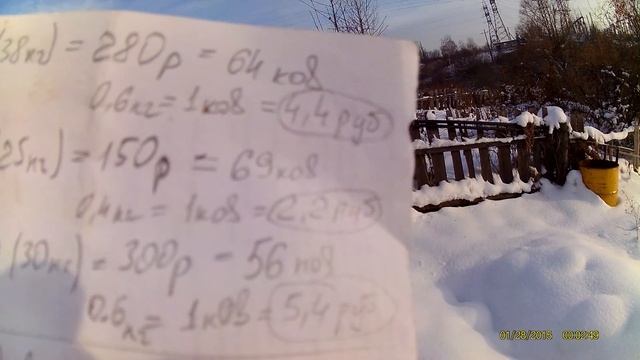 (38кг) = 280р = 64 ков
0,6кг = 1ков = 4,4руб
(25кг) = 150р = 69ков
0,4кг = 1ков = 2,2руб
(30кг) = 300р = 56 ков
0.6кг = 1ков = 5,4руб
01/28/2015 00:03:49